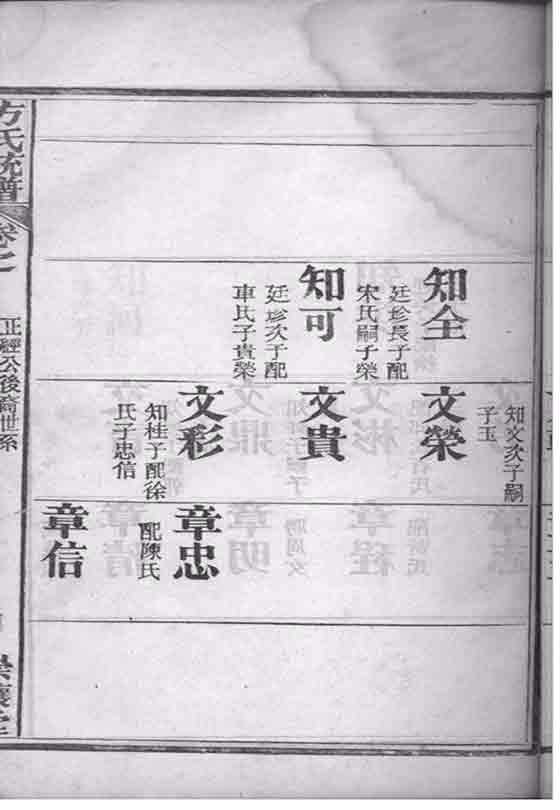 知全
廷珍長子配
宋氏嗣子榮
知可
廷珍次子配
車氏子貴榮
知文次子嗣
子玉
文榮
文貴
文彩
知桂子配徐
氏子忠信
章忠
配陳氏
章信
方氏統譜
卷之
正經公後裔世系